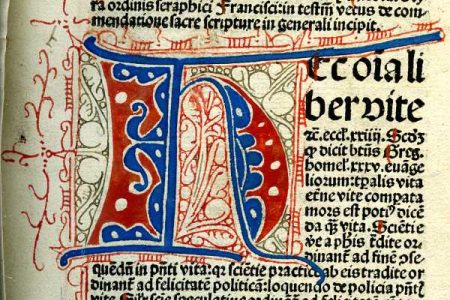 ra ordinis seraphici Francisci: in testm̄ vetus de com
mendatione sacre scripture in generali incipit.
HEc oīa li
ber vite
ꝛc̄. eccl. xxiiij. Scd̄ꝫ
ꝙ dicit bt̄us Greg.
homel. xxxv. euāge
liorum: tꝑalis vita
etne vite compata
mors est poti⁹ dicē
da q̄ꝫ vita. Sciētie
ꝟo a phis tr̄dite or
dinant̄ ad finē ꝯse
quendū in pn̄ti vita: qꝛ sciētie practice ab eis tradite or
dinant̄ ad felicitatē politicā: loquendo de policia pn̄tꝭ